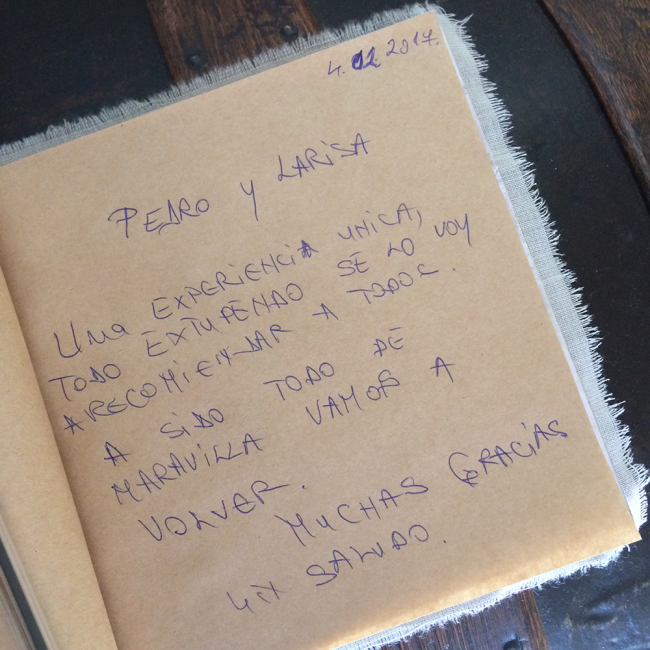 4.02.2017.
PEDRO Y LARISA
UNA EXPERIENCIA UNICA,
TODO EXTUPENDO SE LO VOY
A RECOMIENDAR A TODOS.
A SIDO TODO DE
MARAVILLA VAMOS A
VOLVER.
MUCHAS GRACIAS
UN SALUDO.